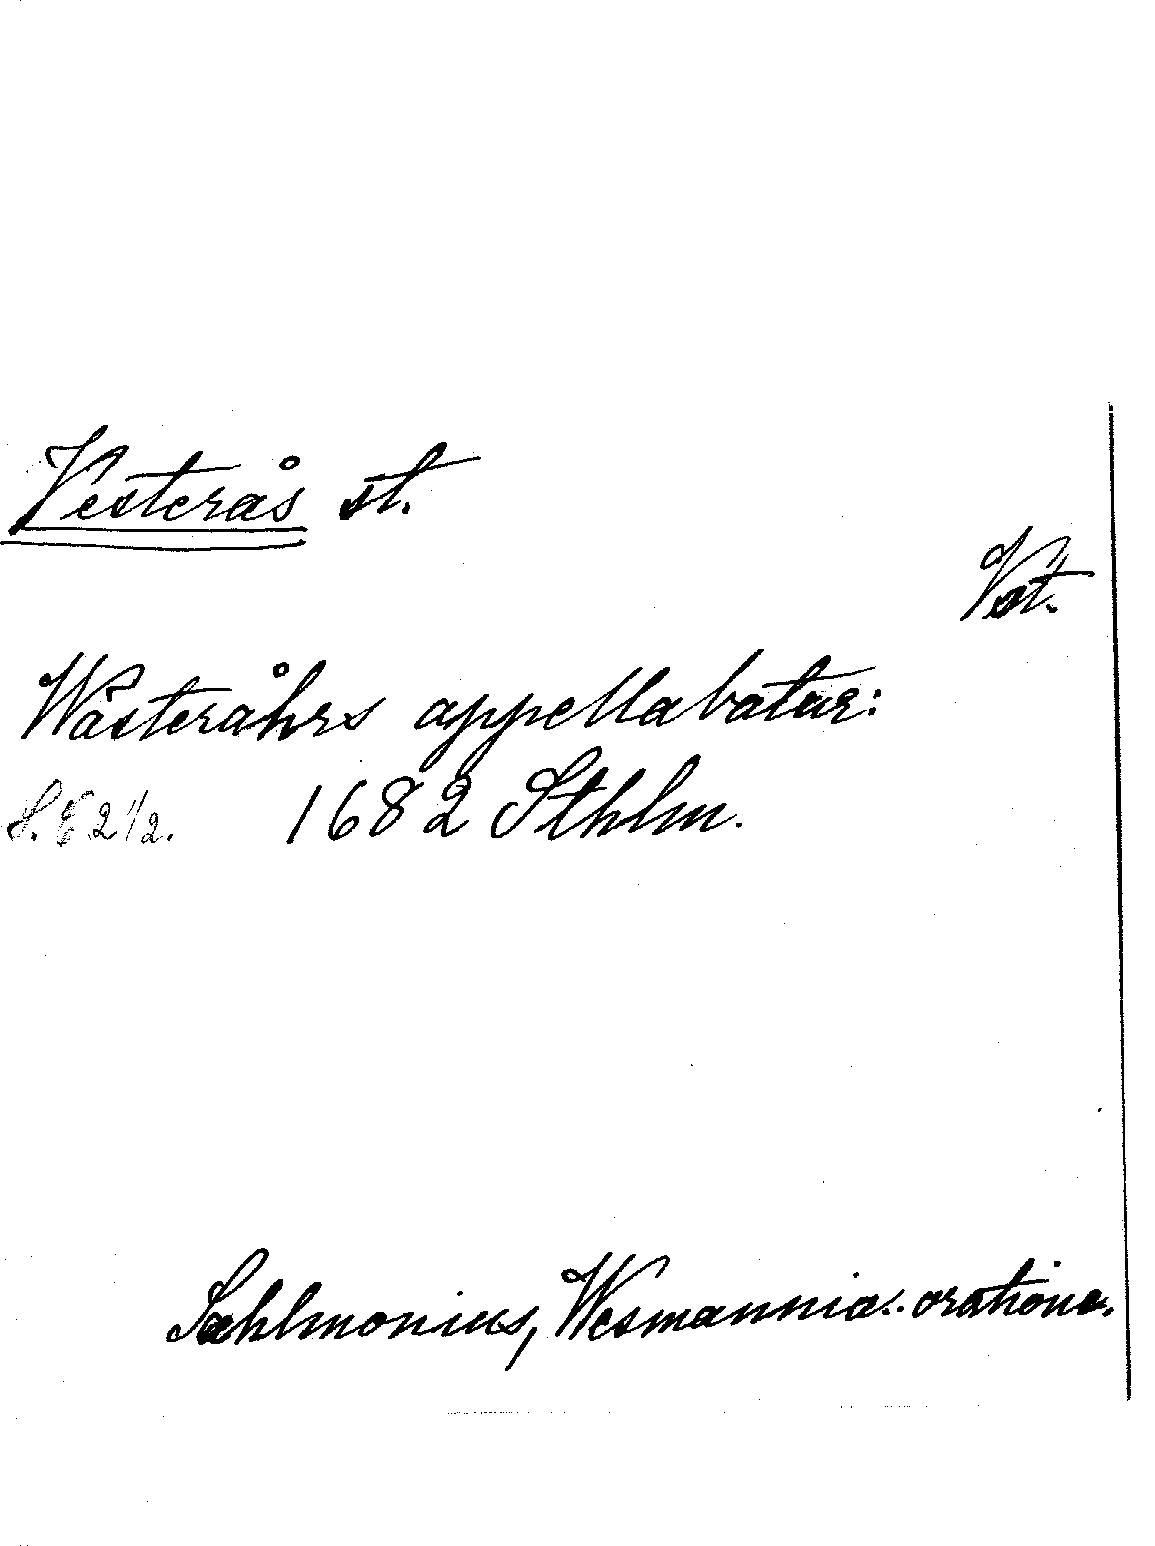 Vesterås st.
Vst.
Wästeråhrs appellabatur:
S. E 2 1/2. 1682 Sthlm.
Sahlmonius, Wesmannia.. oratione.